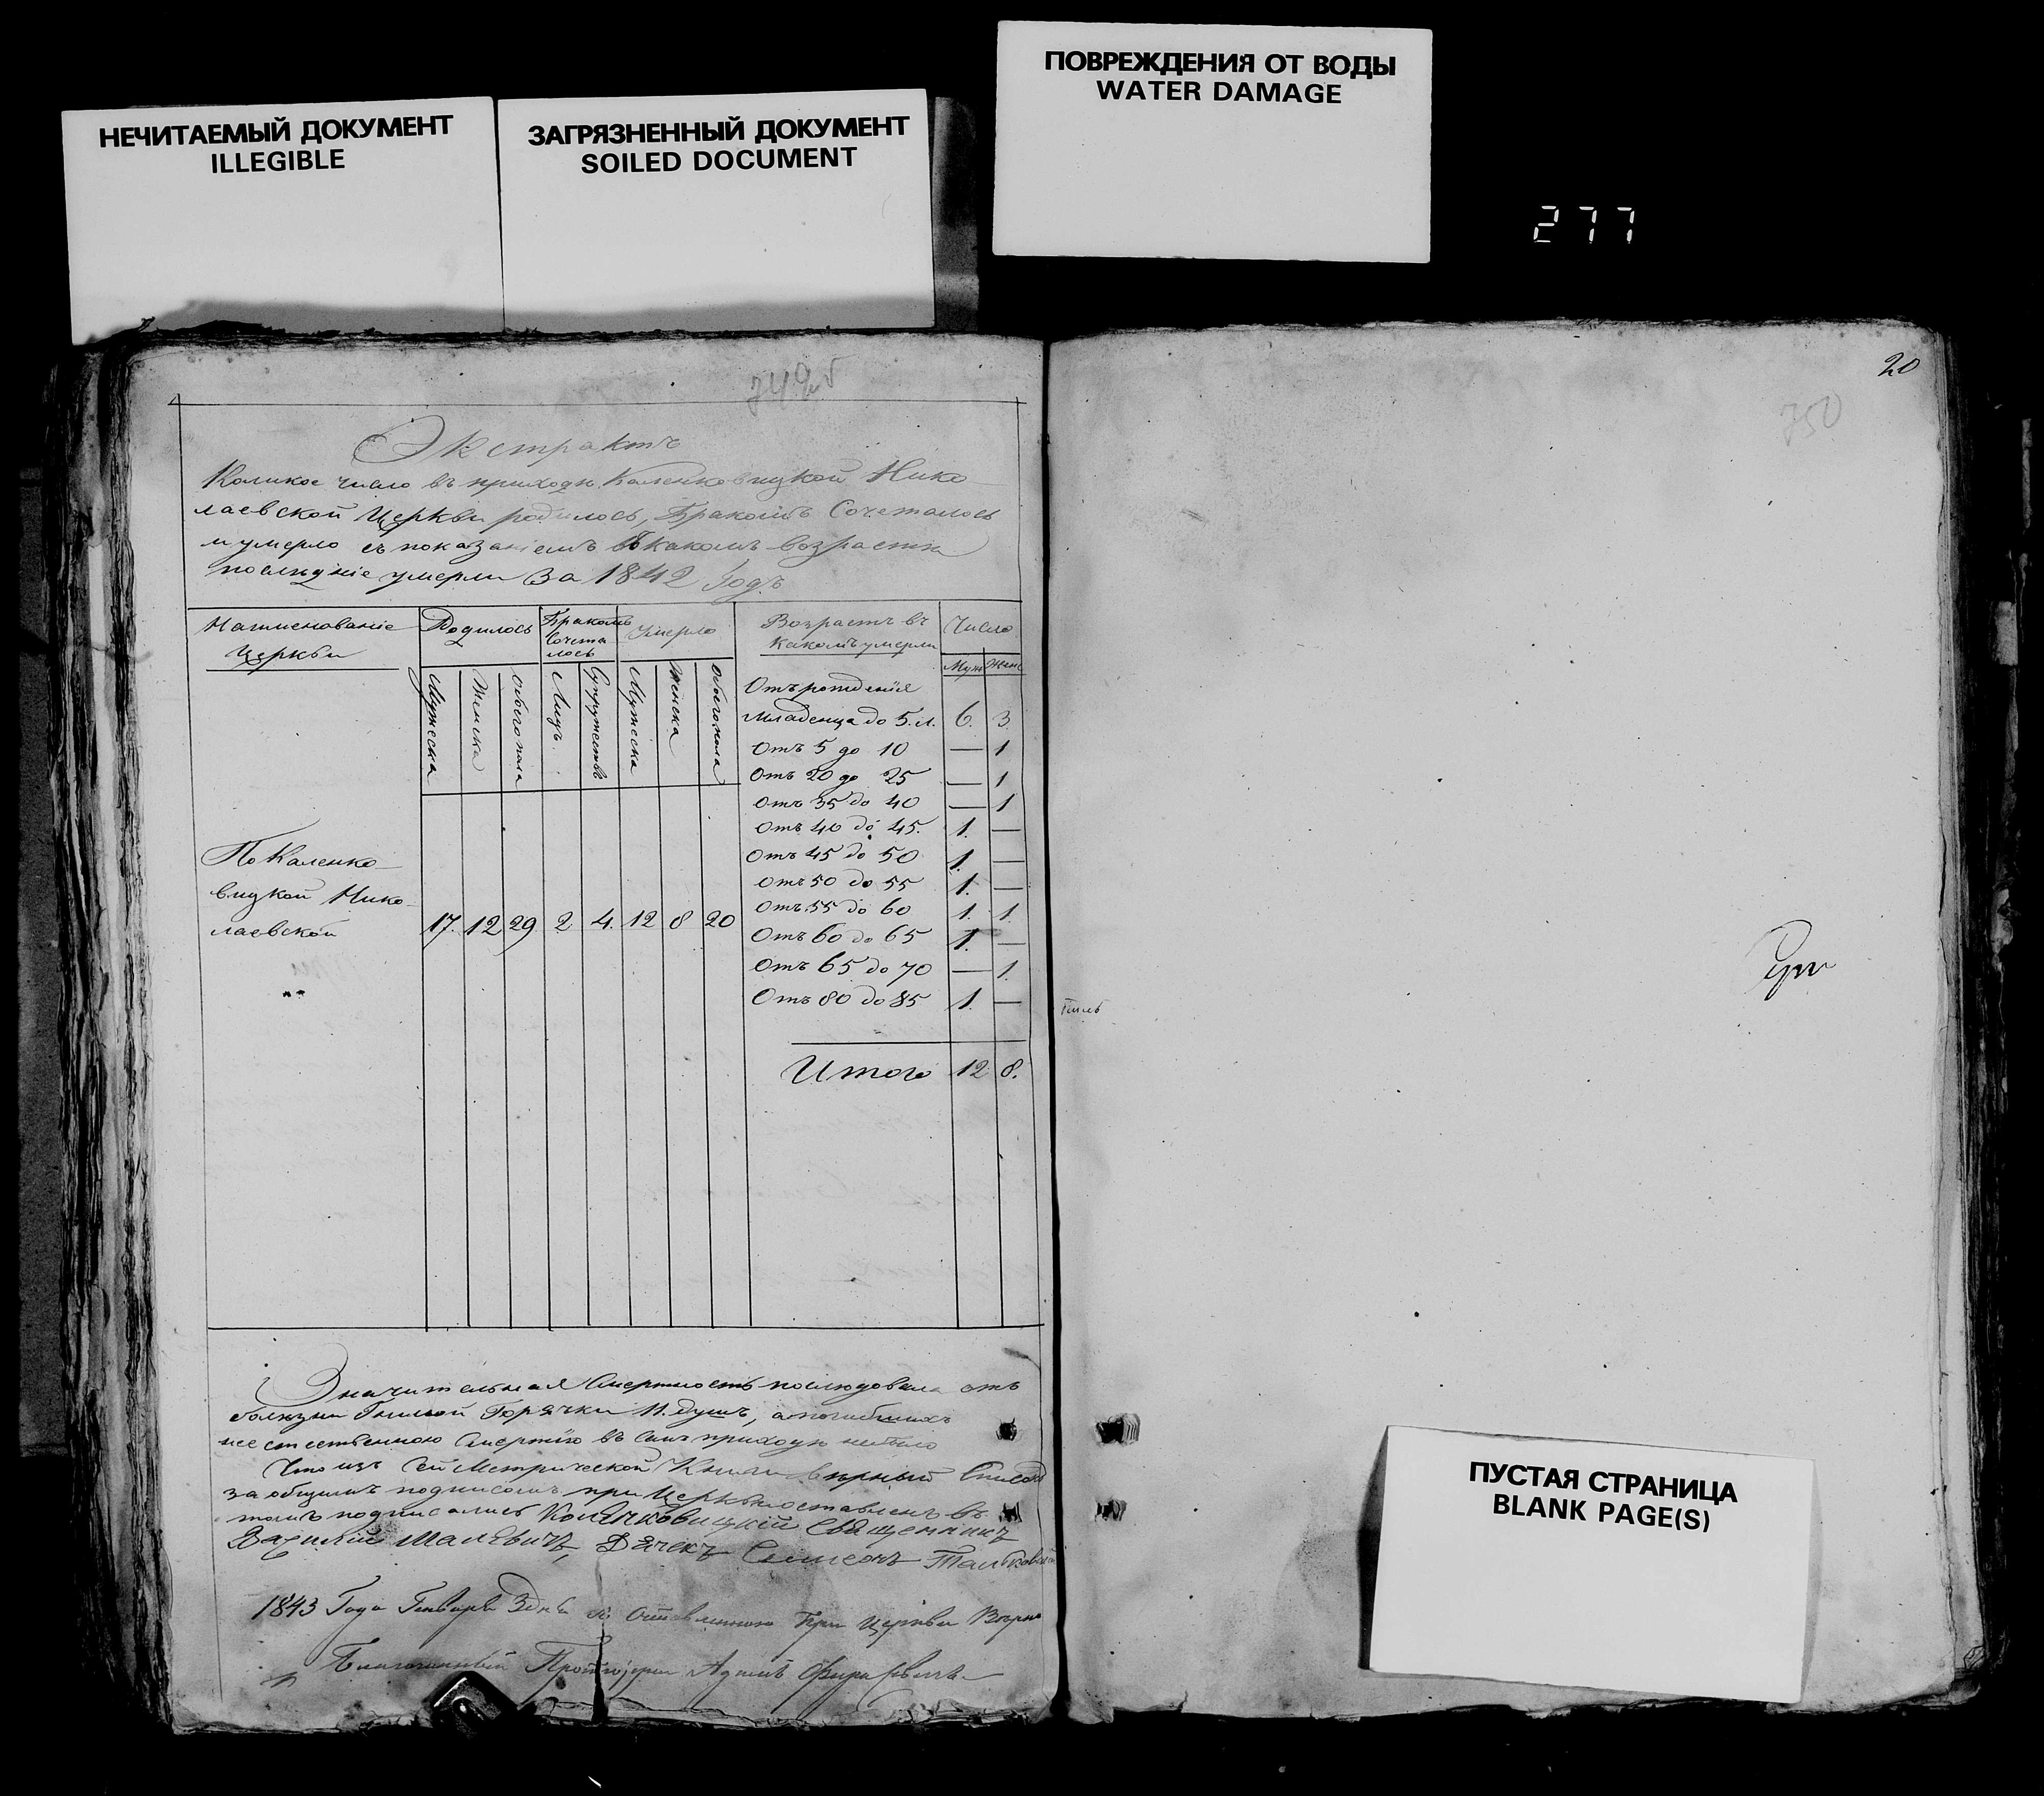 НЕЧИТАЕМЫЙ ДОКУМЕНТ
ILLEGIBLE
ЗАГРЯЗНЕННЫЙ ДОКУМЕНТ
SOILED DOCUMENT
ПОВРЕЖДЕНИЯ ОТ ВОДЫ
WATER DAMAGE
277
Экстрактъ
Коликое число въ приходѣ Каленковицкой Нико
лаевской Церкви родилось, Бракомъ Сочеталось
и умерло съ показаніемъ въ какомъ возрастѣ
послѣдніе умерли За 1842 Годъ
Наименованіе Церкви
Родилось
Бракомъ Сочета лось
Умерло
Возрастъ въ какомъ умерли
Число
Муж Жен
Мужеска
Женска
Обоего пола
Лицъ
Супружествъ
Мужеска
Женска
Обоего пола
Отъ рожденія
Младенца до 5. л. 6. 3
Отъ 5 до 10 — 1
Отъ 20 до 25 — 1
Отъ 35 до 40 — 1
Отъ 40 до 45. 1. —
Отъ 45 до 50 1. —
Отъ 50 до 55 1. —
Отъ 55 до 60 1. 1.
Отъ 60 до 65 1. —
Отъ 65 до 70 — 1.
Отъ 80 до 85 1. —
По Каленко
вицкой Нико
лаевской 17. 12 29 2 4. 12 8 20
Итого 12 8.
Значительная Смертность послѣдовала отъ
болѣзни Гнилой Горячки 11. душъ, а погибшихъ
неестественною Смертію въ семъ приходѣ небыло
Что изъ Сей Метрической Книги вѣрный Списокъ
за общимъ подписомъ при Церкви оставленъ въ
томъ подписались Коленковицкій Священникъ
Василій Малевичъ, Дячекъ Симеонъ
1843 Года Генваря 3 дня съ Оставленною При Церкви Вѣрно
Благочинный Протоіерей Адамъ
20
750
ПУСТАЯ СТРАНИЦА
BLANK PAGE(S)